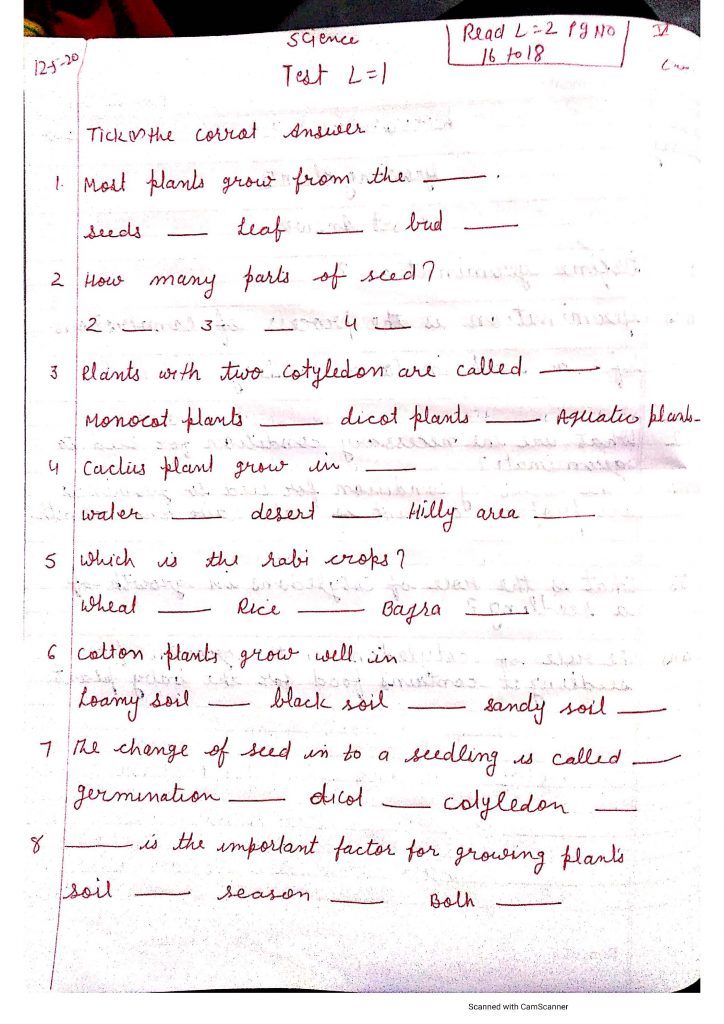 12-5-20
Science
Read L=2 Pg NO
16 to 18
VI
Test L=1
Tick the corrat Answer
1. Most plants grow from the ___.
seeds ___ Leaf ___ bud ___
2 How many parts of seed?
2 ___ 3 ___ 4 ___
3 Plants with two cotyledon are called ___
Monocot plants ___ dicot plants ___ Aquatic plants-
4 Cactus plant grow in ___
water ___ desert ___ Hilly area ___
5 which is the rabi crops?
wheat ___ Rice ___ Bajra ___
6 cotton plants grow well in
Loamy soil ___ black soil ___ sandy soil ___
7 The change of seed in to a seedling is called ___
germination ___ dicot ___ cotyledon ___
8 ___ is the important factor for growing plants
soil ___ season ___ Both ___
Scanned with CamScanner